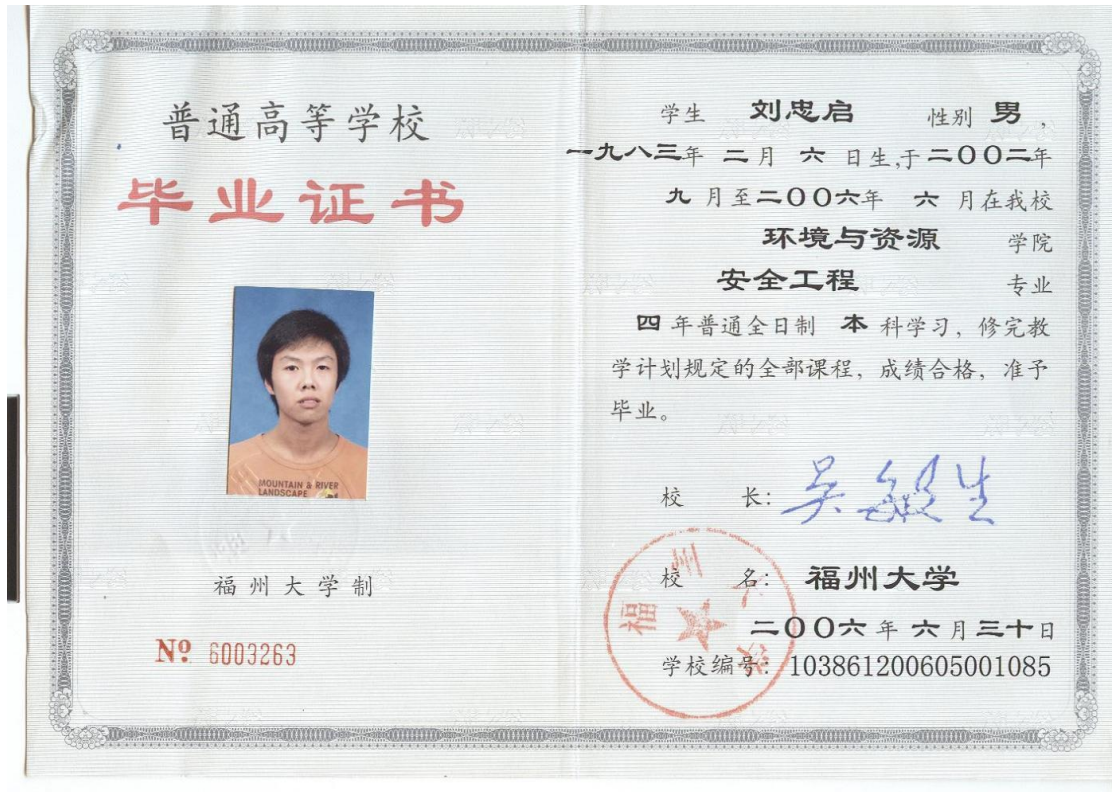 普通高等学校
毕业证书
MOUNTAIN & RIVER
LANDSCAPE
福州大学制
№ 6003263
学生 刘忠启 性别 男，
一九八三年 二月 六 日生,于二〇〇二年
九 月至二〇〇六年 六 月在我校
环境与资源 学院
安全工程 专业
四 年普通全日制 本 科学习，修完教
学计划规定的全部课程，成绩合格，准予
毕业。
校 长：吴敏生
校 名：福州大学
二〇〇六 年 六 月 三十日
学校编号：103861200605001085
福州大学